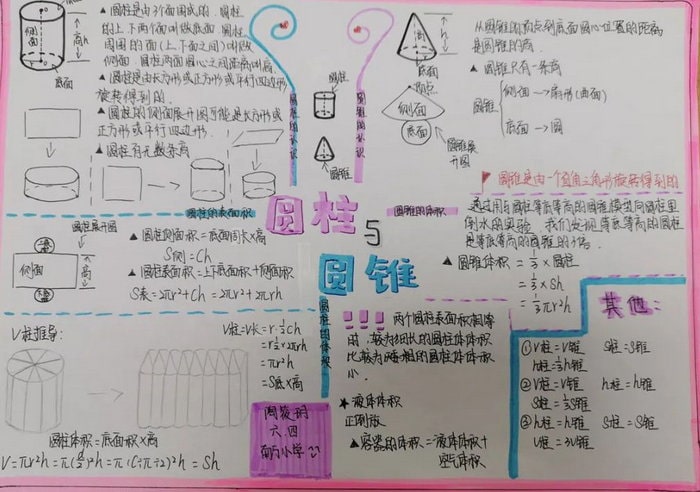 ▲圆柱是由3个面围成的.圆柱
的上下两个面叫做底面.圆柱
周围的面(上、下面之间)叫做
侧面.圆柱两面圆心之间距离叫高.
▲圆柱是由长方形或正方形或平行四边形
旋转得到的
▲圆柱的侧面展开图可能是长方形或
正方形或平行四边形.
▲圆柱有无数条高
侧面
高h
底面
圆柱的认识
圆柱
圆锥
圆锥的认识
高
h
底面
顶点
侧面
底面
圆锥展
开图
从圆锥的顶点到底面圆心位置的距离
是圆锥的高.
▲圆锥只有一条高
圆锥
侧面→扇形(曲面)
底面→圆
圆锥是由一个直角三角形旋转得到的
圆柱与圆锥
圆柱的表面积
圆柱展开图
上底
侧面
高
下底
▲圆柱侧面积=底面周长×高
S侧=Ch
▲圆柱表面积=上下底面积+侧面积
S表=2πr²+Ch=2πr²+2πrh
圆锥的体积
通过用与圆柱等底等高的圆锥模型向圆柱里
倒水的实验,我们发现等底等高的圆柱
是等底等高的圆锥的3倍.
▲圆锥体积=⅓×圆柱
=⅓×Sh
=⅓πr²h
圆柱的体积
V柱推导:
V柱=Vk=r·½Ch
=r½×2πrh
=πr²h
=S底×高
圆柱体积=底面积×高
V=πr²h=π(d/2)²h=π(C÷π÷2)²h=Sh
六.四
南方小学
!!!两个圆柱表面积相等
时,较为细长的圆柱体体积
比较为矮粗的圆柱体体积
小.
★液体体积
正倒放
▲容器的体积=液体体积+
空气体积
其他:
①V柱=V锥 S柱=S锥
h柱=⅓h锥
②V柱=V锥 h柱=h锥
S柱=⅓S锥
③h柱=h锥 S柱=S锥
V柱=3V锥